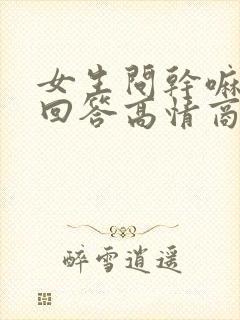 女生問幹嘛
回答高情商
醉雪逍遥